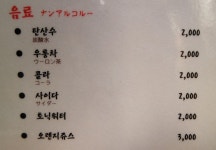 음료 ナンアルコルー
탄상수 2,000
炭酸水
우롱차 2,000
ウーロン茶
콜라 2,000
コーラ
사이다 2,000
サイダー
토닉워터 2,000
오렌지쥬스 3,000